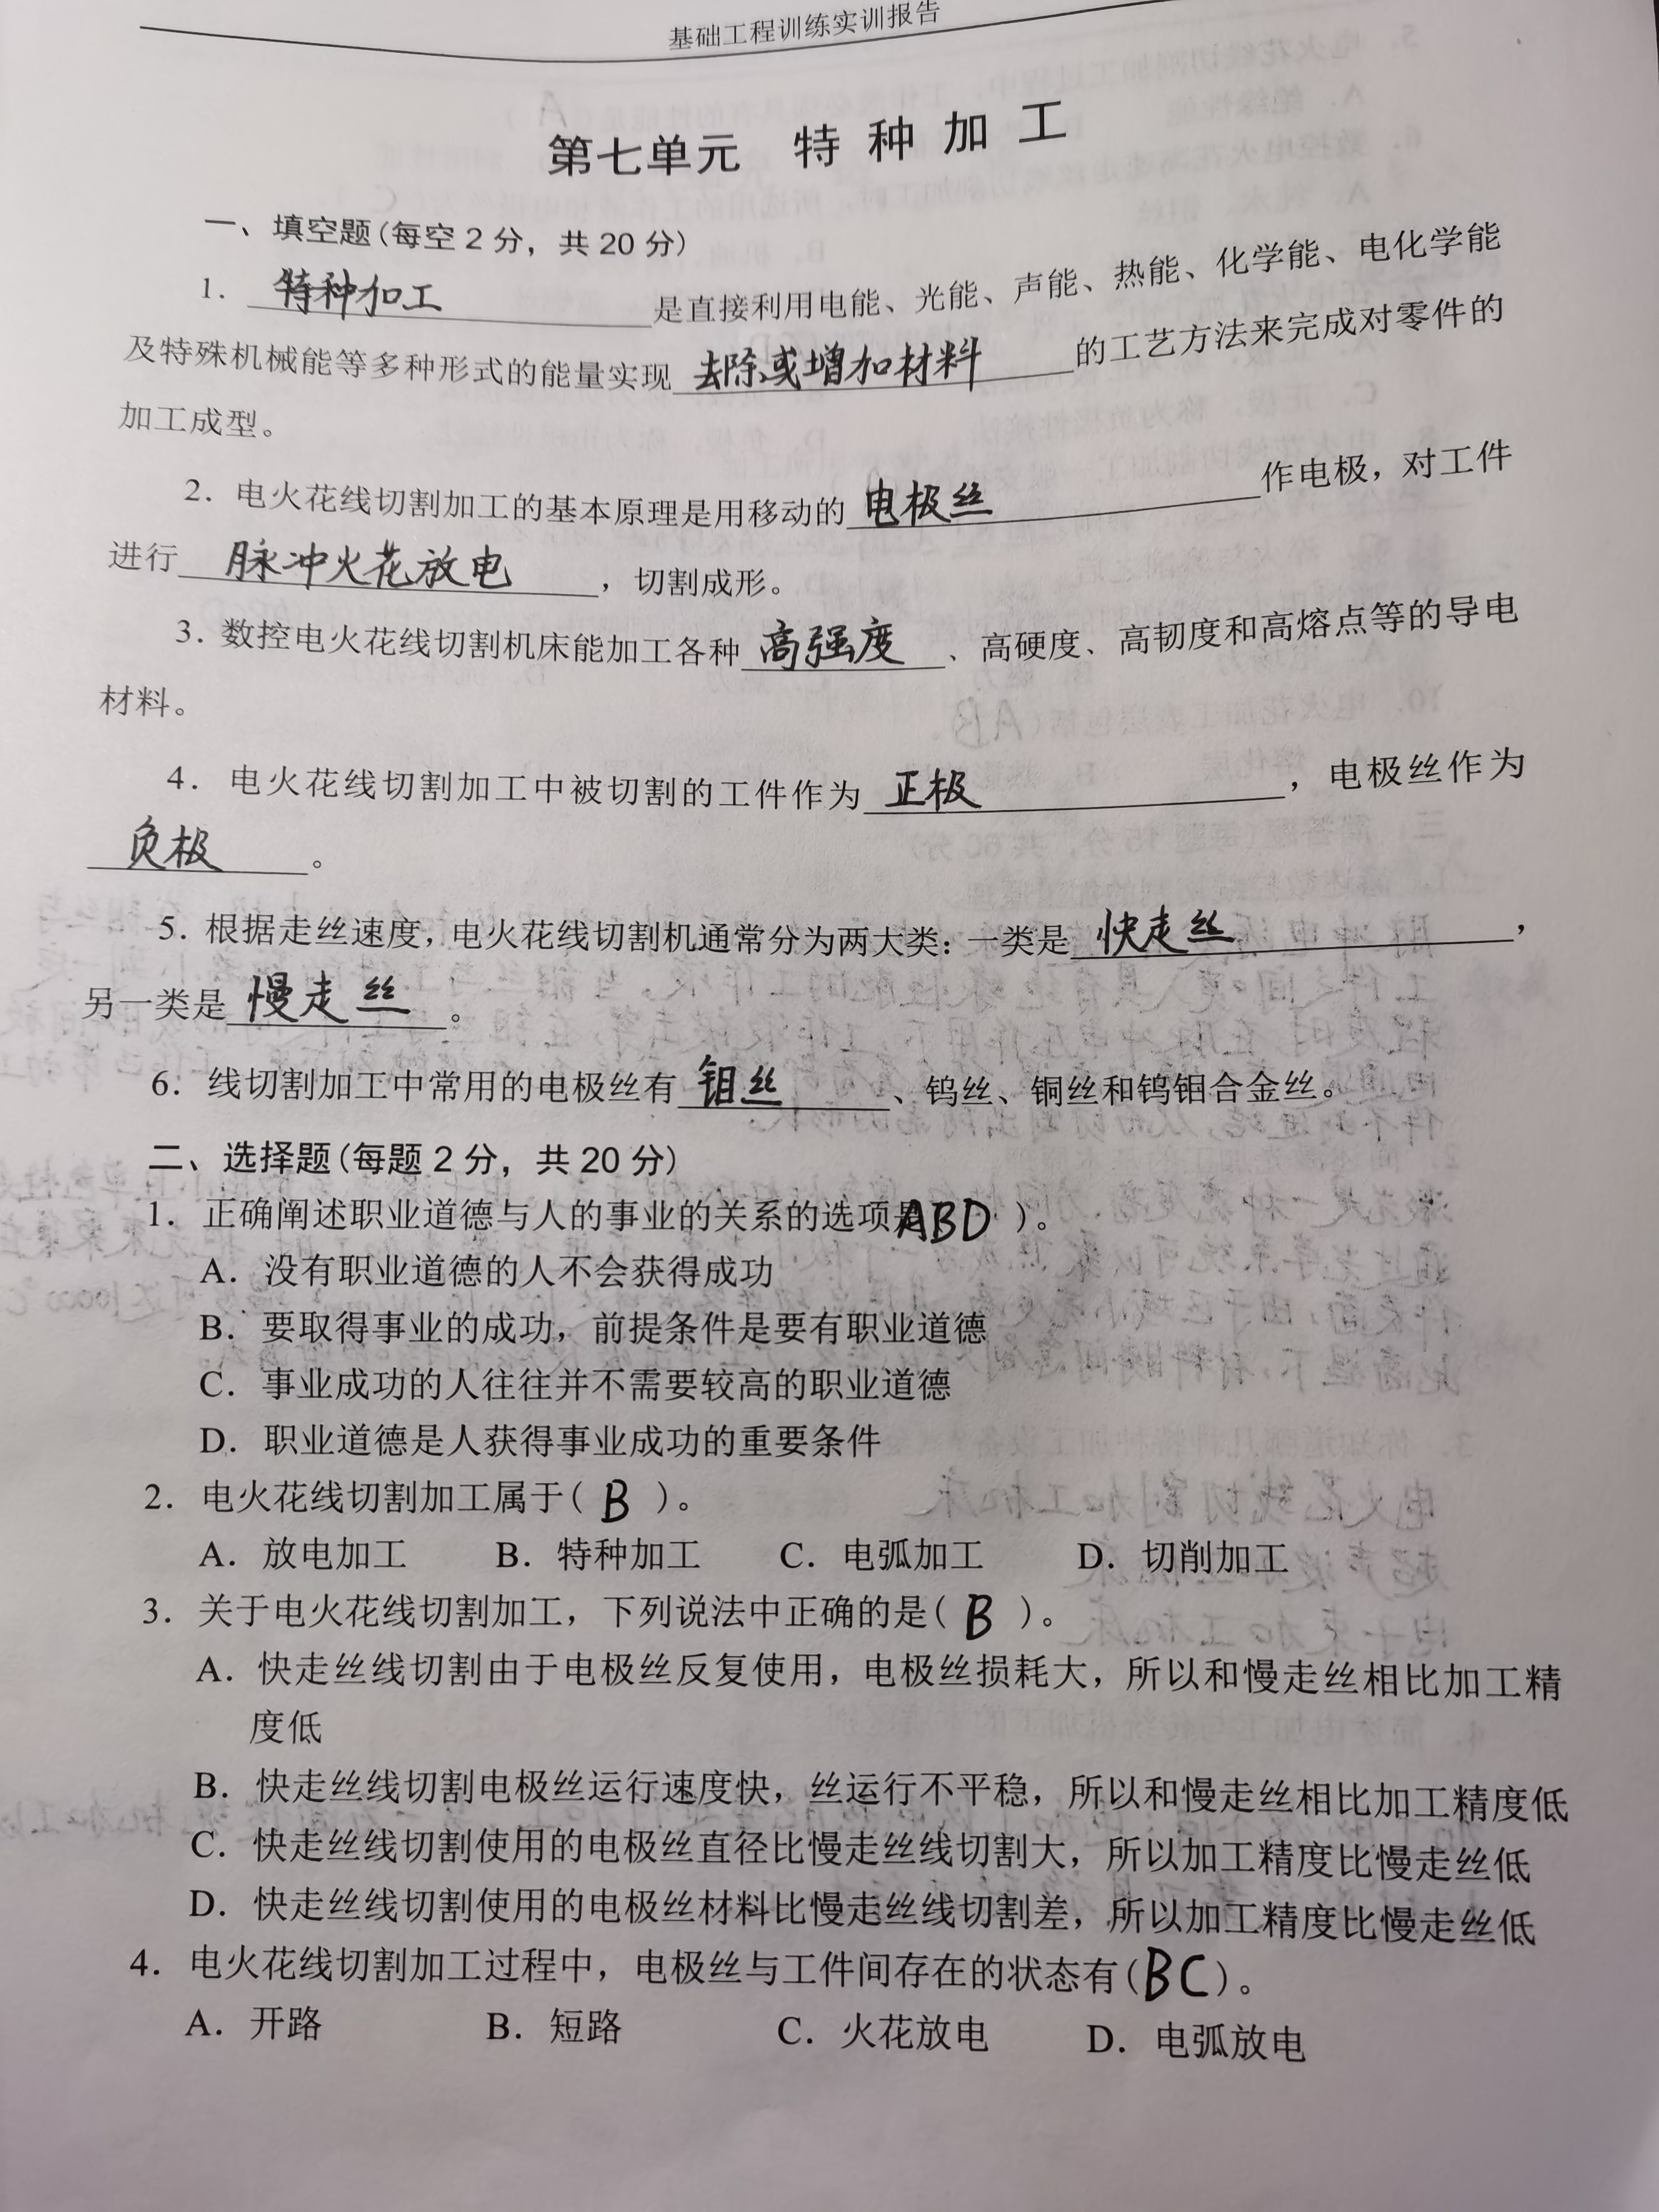 基础工程训练实训报告
第七单元 特种加工
一、填空题(每空2分，共20分)
1. 特种加工 是直接利用电能、光能、声能、热能、化学能、电化学能
及特殊机械能等多种形式的能量实现 去除或增加材料 的工艺方法来完成对零件的
加工成型。
2. 电火花线切割加工的基本原理是用移动的 电极丝 作电极，对工件
进行 脉冲火花放电 ，切割成形。
3. 数控电火花线切割机床能加工各种 高强度 、高硬度、高韧度和高熔点等的导电
材料。
4. 电火花线切割加工中被切割的工件作为 正极 ，电极丝作为
负极 。
5. 根据走丝速度，电火花线切割机通常分为两大类：一类是 快走丝 ，
另一类是 慢走丝 。
6. 线切割加工中常用的电极丝有 钼丝 、钨丝、铜丝和钨钼合金丝。
二、选择题(每题2分，共20分)
1. 正确阐述职业道德与人的事业的关系的选项是 ABD )。
A. 没有职业道德的人不会获得成功
B. 要取得事业的成功，前提条件是要有职业道德
C. 事业成功的人往往并不需要较高的职业道德
D. 职业道德是人获得事业成功的重要条件
2. 电火花线切割加工属于( B )。
A. 放电加工 B. 特种加工 C. 电弧加工 D. 切削加工
3. 关于电火花线切割加工，下列说法中正确的是( B )。
A. 快走丝线切割由于电极丝反复使用，电极丝损耗大，所以和慢走丝相比加工精
度低
B. 快走丝线切割电极丝运行速度快，丝运行不平稳，所以和慢走丝相比加工精度低
C. 快走丝线切割使用的电极丝直径比慢走丝线切割大，所以加工精度比慢走丝低
D. 快走丝线切割使用的电极丝材料比慢走丝线切割差，所以加工精度比慢走丝低
4. 电火花线切割加工过程中，电极丝与工件间存在的状态有( BC )。
A. 开路 B. 短路 C. 火花放电 D. 电弧放电